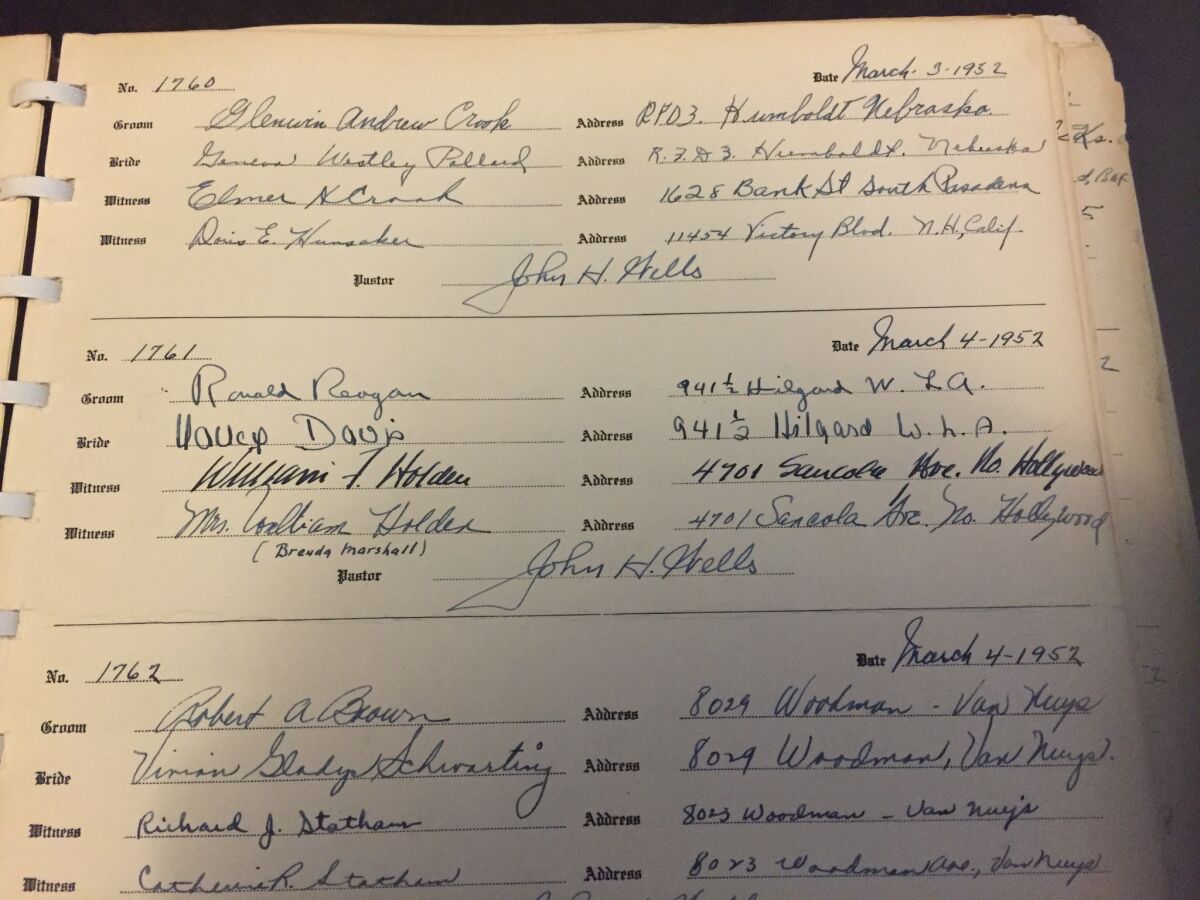 No. 1760 Date March-3-1952
Groom Glenwin Andrew Crook Address R.F.D3. Humboldt Nebraska.
Bride Geneva Westley Pollard Address R.F.D3. Humboldt. Nebraska
Witness Elmer H Crook Address 1628 Bank St South Pasadena
Witness Doris E. Hunsaker Address 11454 Victory Blvd. N.H., Calif.
Pastor John H. Wells
No. 1761 Date March 4-1952
Groom Ronald Reagan Address 941½ Hilgard W. L A.
Bride Nancy Davis Address 941½ Hilgard W. L. A.
Witness William Holden Address 4701 Ave. No. Hollywood
Witness Mrs. William Holden Address 4701 Ave. No. Hollywood
(Brenda Marshall)
Pastor John H. Wells
No. 1762 Date March 4-1952
Groom Robert A Brown Address 8029 Woodman - Van Nuys
Bride Vivian Gladys Schwarting Address 8029 Woodman, Van Nuys.
Witness Richard J. Statham Address 8023 Woodman - Van Nuys
Witness Catherine R. Statham Address 8023 Woodman Ave., Van Nuys